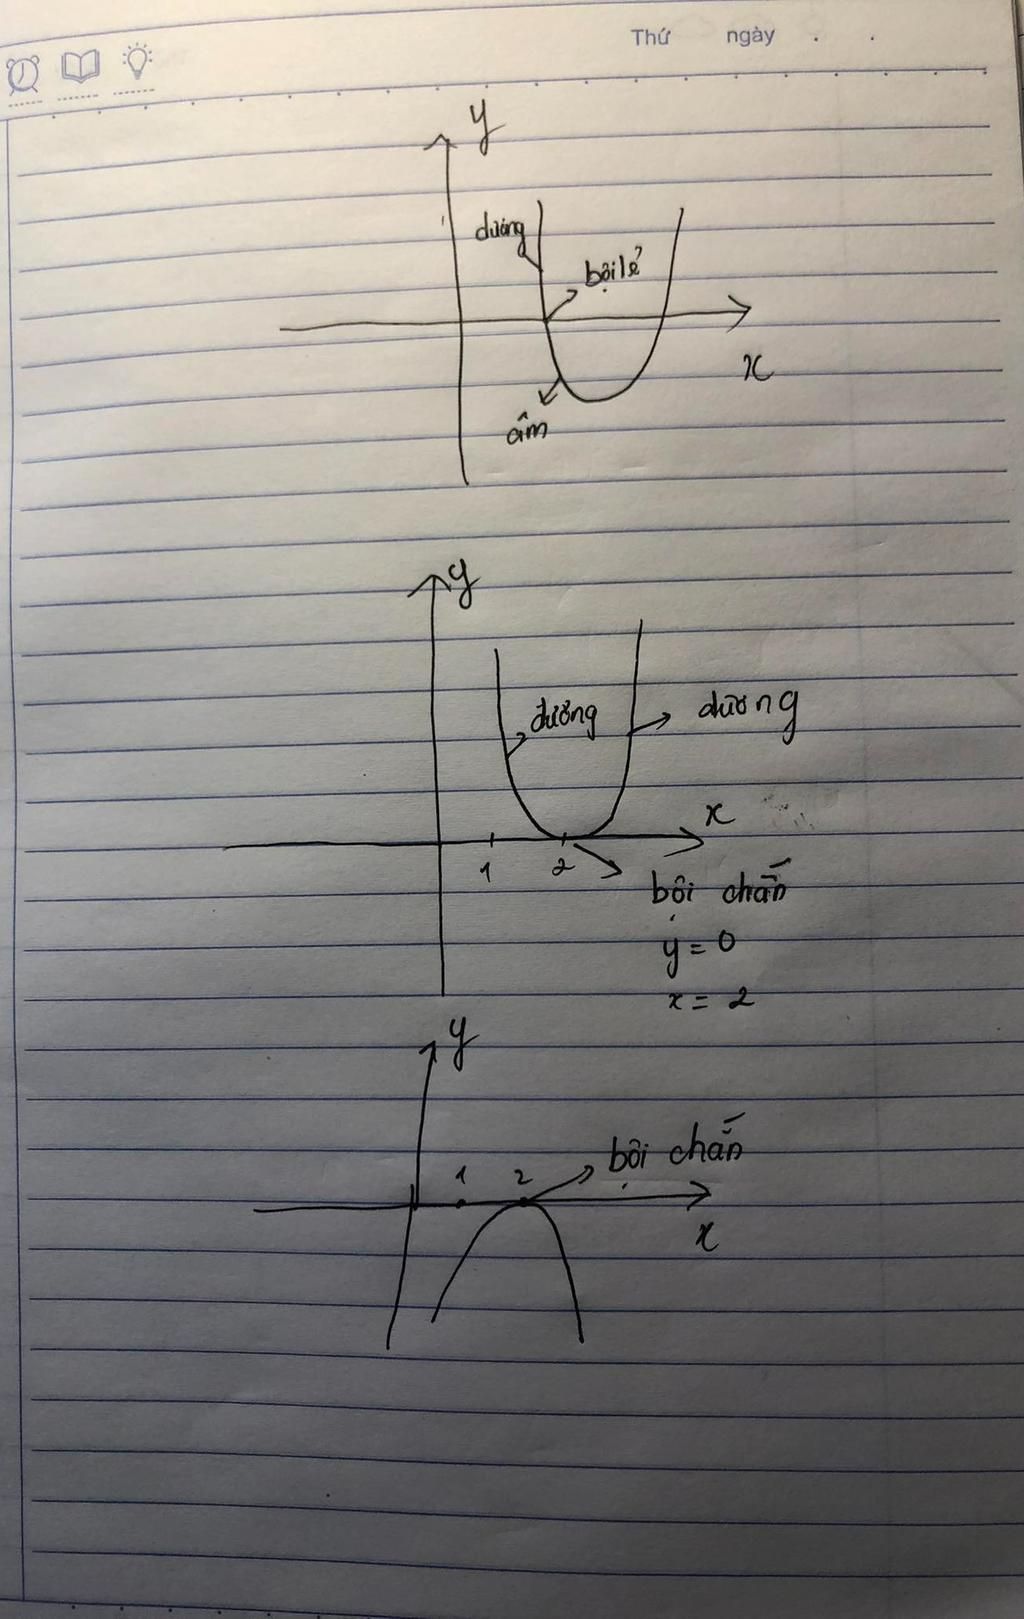 Thứ ngày . .
y
dương
bội lẻ
x
âm
y
dương dương
x
1 2
bội chẵn
y = 0
x = 2
y
1 2 bội chẵn
x